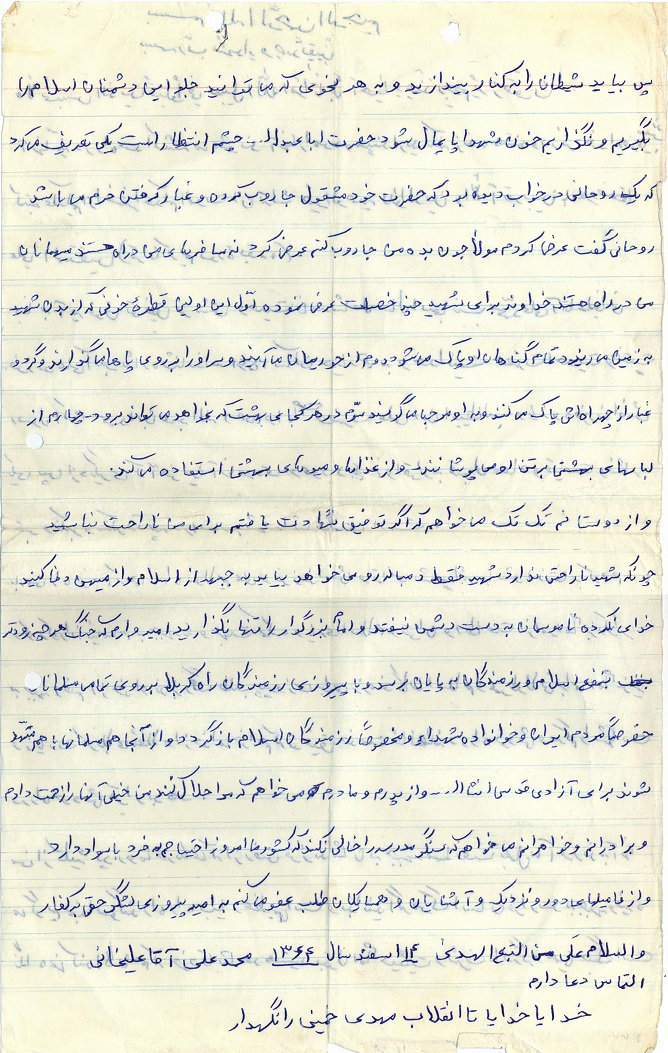 پس بیاید شیطان را به کنار بیندازید و به هر نحوی که می توانید جلو این دشمنان اسلام را
بگیریم و نگذاریم خون شهدا پایمال شود حضرت اباعبدالـ... چشم انتظار است یکی تعریف می کرد
که یک روحانی در خواب دیده بود که حضرت خود مشغول جاروب کرده و غبار گرفتن حرم می باشد
روحانی گفت عرض کردم مولا جون بده من جاروب کنم عرض کرد نه مسافرهای من در راه هستند میهمانان
من در راه هستند خداوند برای شهید چند خصلت عرض نموده اول این اولین قطره خونی که از بدن شهید
به زمین می ریزد تمام گناهان او پاک می شود دوم از حوریان می آیند و سر او را بر روی پاها می گذارند و گرد و
غبار از چهره اش پاک می کنند و به او مرحبا می گویند سوم در هر کجای بهشت که بخواهد می تواند برود چهارم از
لباسهای بهشتی بر تن او می پوشانند و از غذاها و میوه های بهشتی استفاده می کند.
و از دوستانم تک تک می خواهم که اگر توفیق شهادت یافتم برای من ناراحت نباشید
چونکه شهید ناراحتی ندارد شهید فقط دنباله رو می خواهد بیاید به جبهه از اسلام و از میهن دفاع کنید
خدای نکرده ناموسمان به دست دشمن نیفتد و امام بزرگوار را تنها نگذارید امیدوارم که جنگ هر چه زودتر
بنفع اسلام و رزمندگان به پایان برسد و با پیروزی رزمندگان راه کربلا بر روی تمامی مسلمانان
خصوصاً مردم ایران و خانواده شهداء و مخصوصاً رزمندگان اسلام باز گردد و از آنجا هم مسلمانها با هم متحد
شوند برای آزادی قدس انشاالـ... و از پدرم و مادرم می خواهم که مرا حلال کنند من خیلی آنها را زحمت دادم
و برادرانم و خواهرانم می خواهم که سنگر مدرسه را خالی نکنند که کشور ما امروز احتیاج به فرد با سواد دارد
و از فامیلهای دور و نزدیک و آشنایان و همسایگان طلب عفو می کنم به امید پیروزی لشگر حق بر کفار
والسلام علی من التبع الهدی ۱۴ اسفند سال ۱۳۶۴ محمد علی آقا علیخانی
التماس دعا دارم
خدایا خدایا تا انقلاب مهدی خمینی را نگهدار